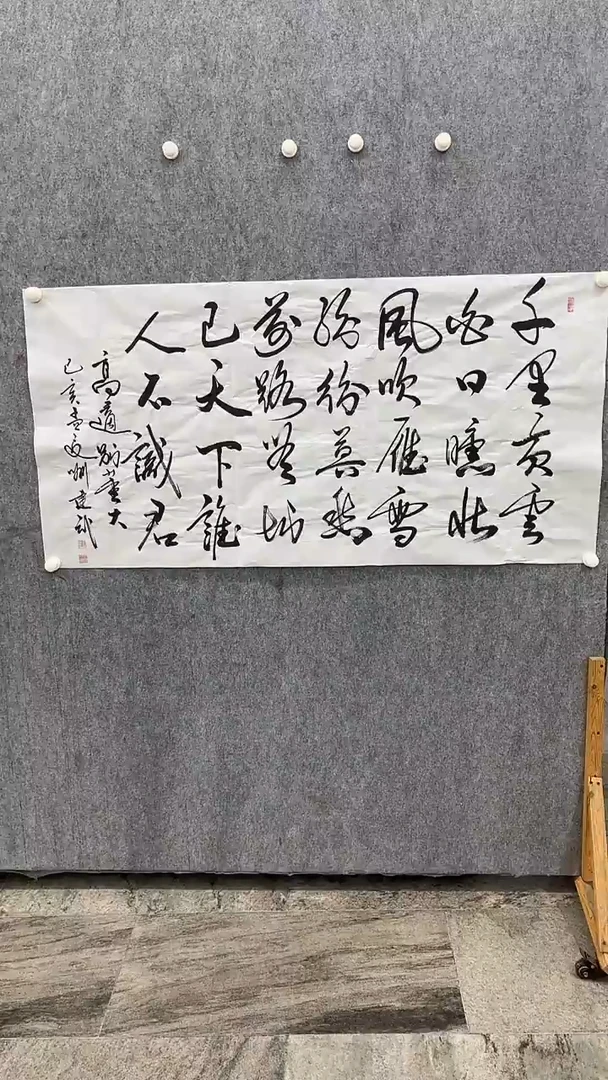 千里黄雲
白日曛北
風吹雁雪
紛紛莫愁
前路無知
己天下誰
人不識君
高適別董大
己亥孟夏